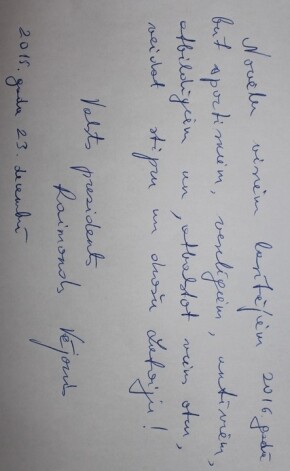 Novēlu visiem lasītājiem 2016. gadā
būt sportiskiem, veselīgiem, aktīviem,
atbildīgiem un, atbalstot viens otru,
veidot stipru un drošu Latviju!
Valsts prezidents
Raimonds Vējonis
2015. gada 23. decembrī